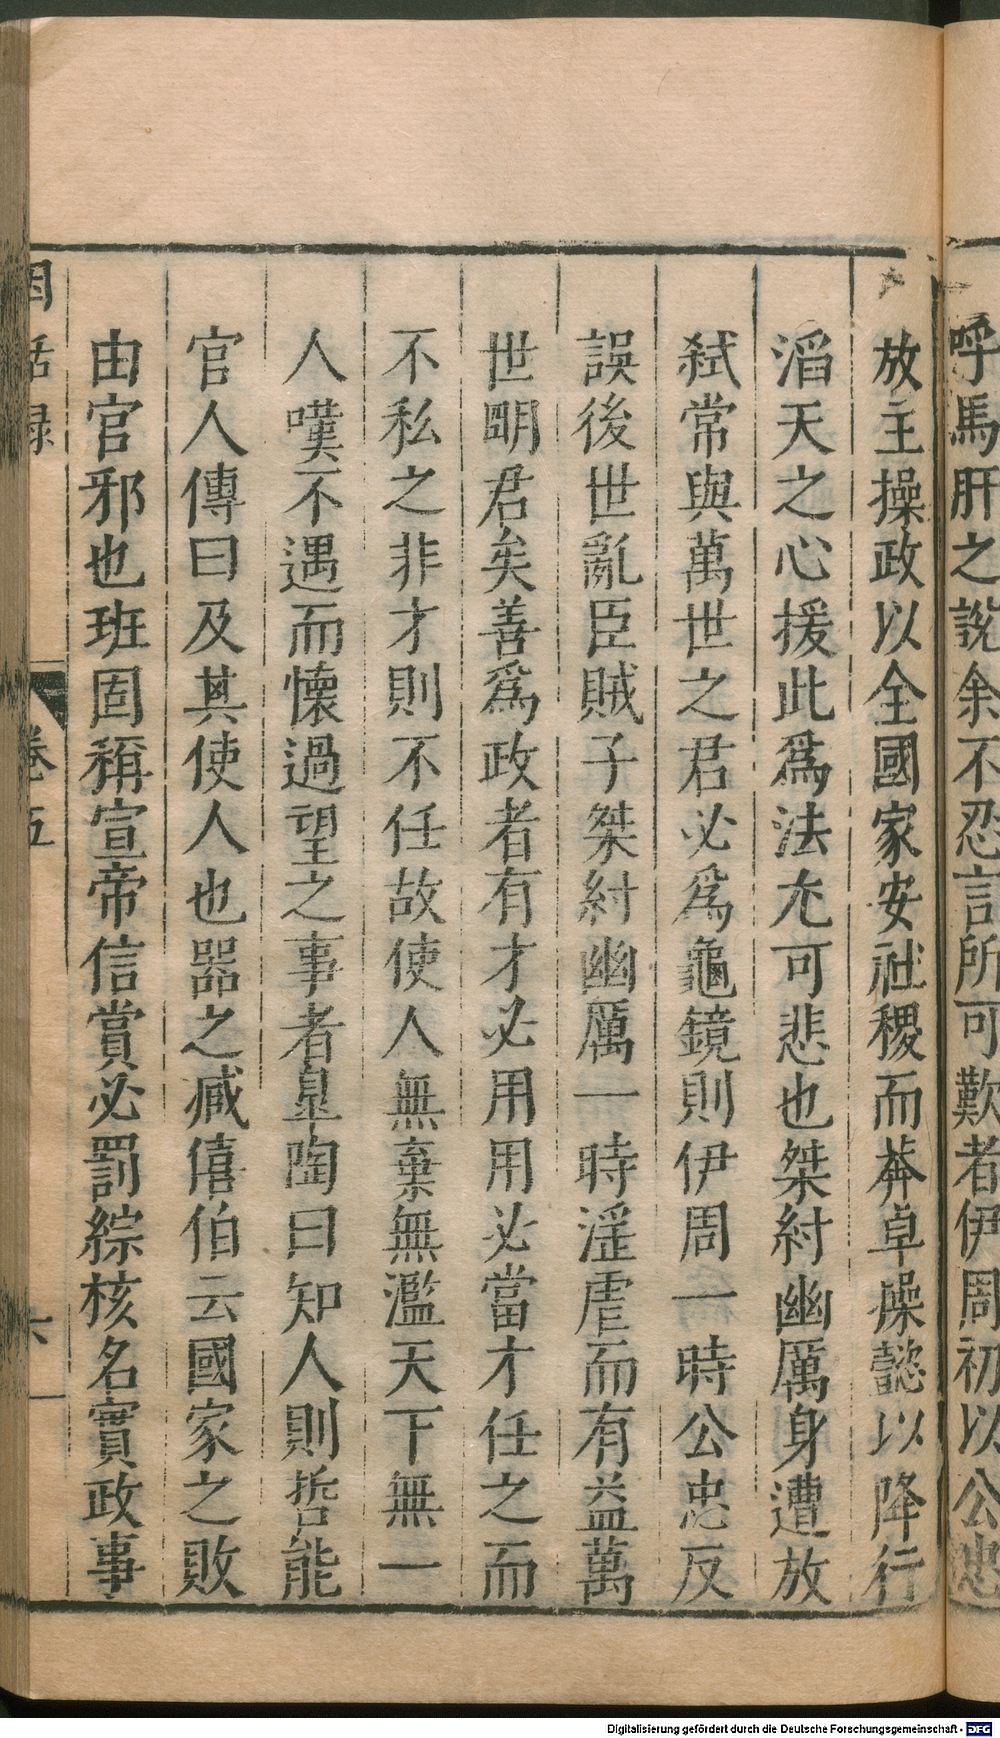 呼馬肝之說余不忍言所可歎者伊周初以公忠
放主操政以全國家安社稷而莽卓操懿以降行
滔天之心援此爲法尤可悲也桀紂幽厲身遭放
弑常與萬世之君必爲龜鏡則伊周一時公忠反
誤後世亂臣賊子桀紂幽厲一時淫虐而有益萬
世明君矣善爲政者有才必用用必當才任之而
不私之非才則不任故使人無棄無濫天下無一
人嘆不遇而懷過望之事者臯陶曰知人則哲能
官人傳曰及其使人也器之臧僖伯云國家之敗
由官邪也班固稱宣帝信賞必罰綜核名實政事
因話録
卷五
六
Digitalisierung gefördert durch die Deutsche Forschungsgemeinschaft - DFG